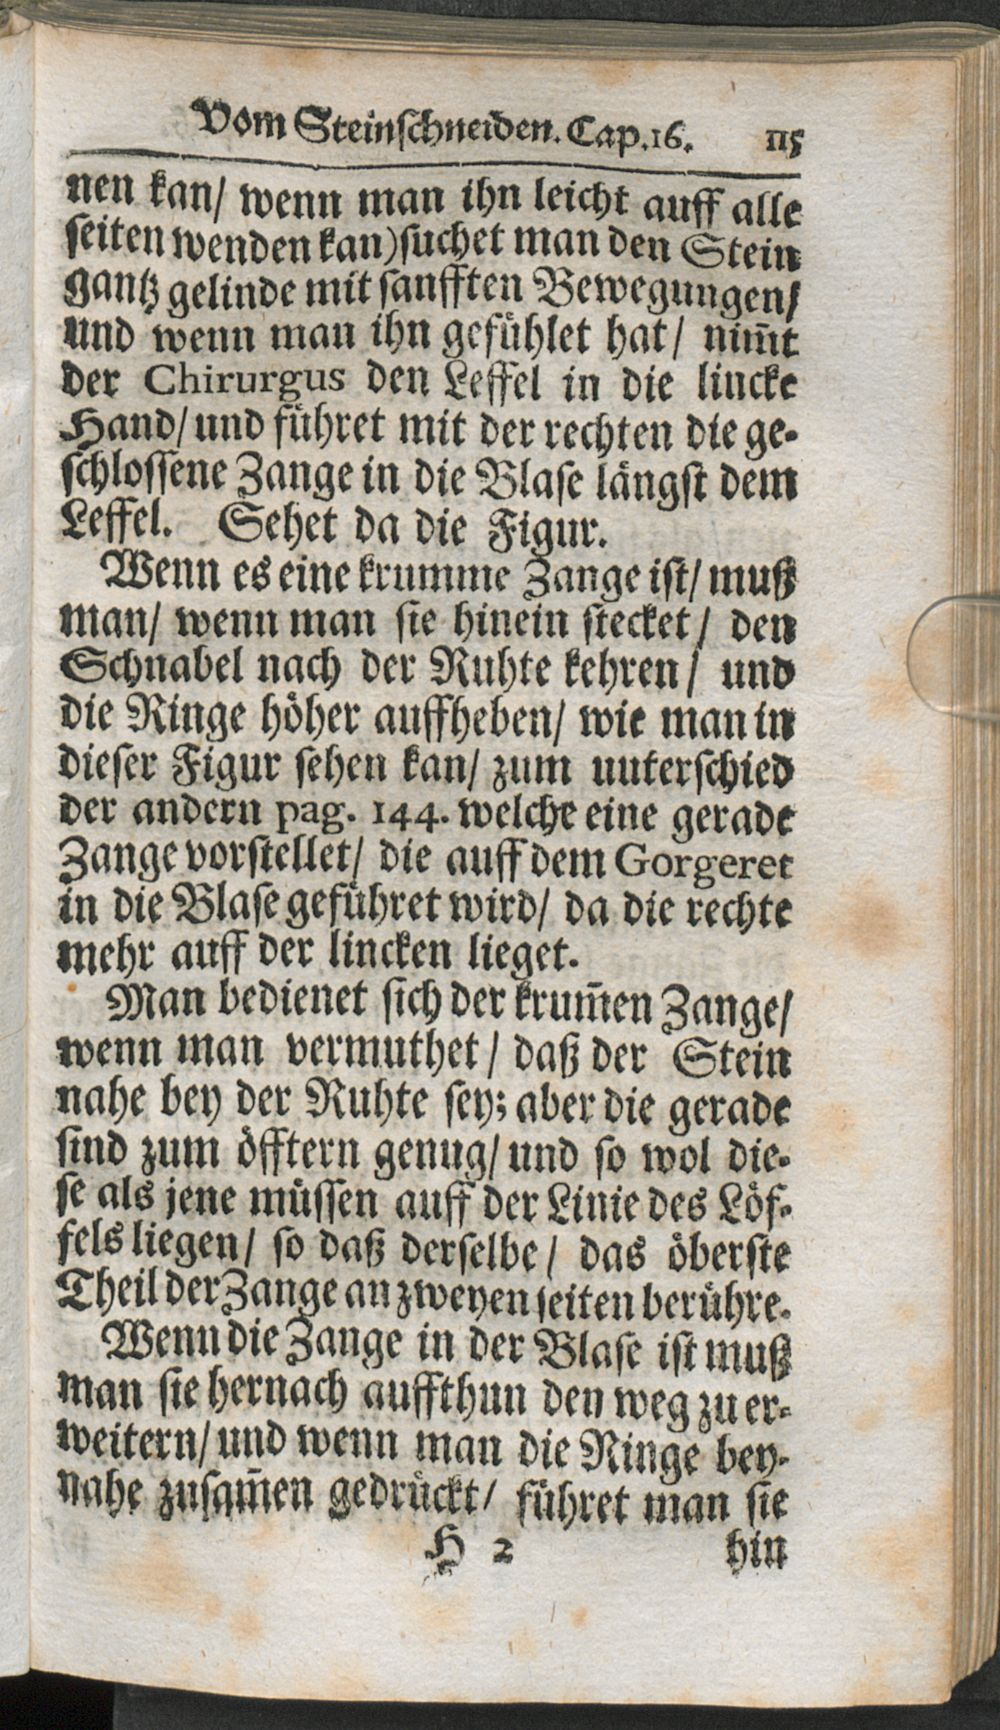 Vom Steinschneiden. Cap. 16. 115
nen kan/ wenn man ihn leicht auff alle
seiten wenden kan) suchet man den Stein
gantz gelinde mit sanfften Bewegungen/
und wenn man ihn gefühlet hat/ nim̃t
der Chirurgus den Leffel in die lincke
Hand/ und führet mit der rechten die ge-
schlossene Zange in die Blase längst dem
Leffel. Sehet da die Figur.
Wenn es eine krumme Zange ist/ muß
man/ wenn man sie hinein stecket/ den
Schnabel nach der Ruhte kehren/ und
die Ringe höher auffheben/ wie man in
dieser Figur sehen kan/ zum unterschied
der andern pag. 144. welche eine gerade
Zange vorstellet/ die auff dem Gorgeret
in die Blase geführet wird/ da die rechte
mehr auff der lincken lieget.
Man bedienet sich der krum̃en Zange/
wenn man vermuthet/ daß der Stein
nahe bey der Ruhte sey; aber die gerade
sind zum öfftern genug/ und so wol die-
se als jene müssen auff der Linie des Löf-
fels liegen/ so daß derselbe/ das öberste
Theil der Zange an zweyen seiten berühre.
Wenn die Zange in der Blase ist muß
man sie hernach auffthun den weg zu er-
weitern/ und wenn man die Ringe bey-
nahe zusam̃en gedrückt/ führet man sie
H 2 hin